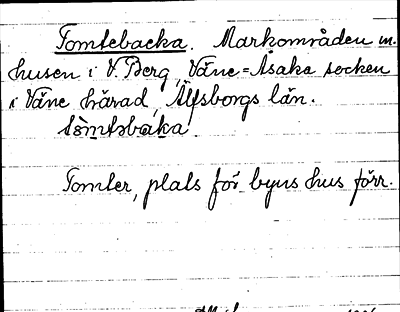 Tomtebacka. Markområden m.
husen i V. Berg, Väne=Åsaka socken
i Väne härad, Älfsborgs län.
Tomter, plats för byns hus förr.